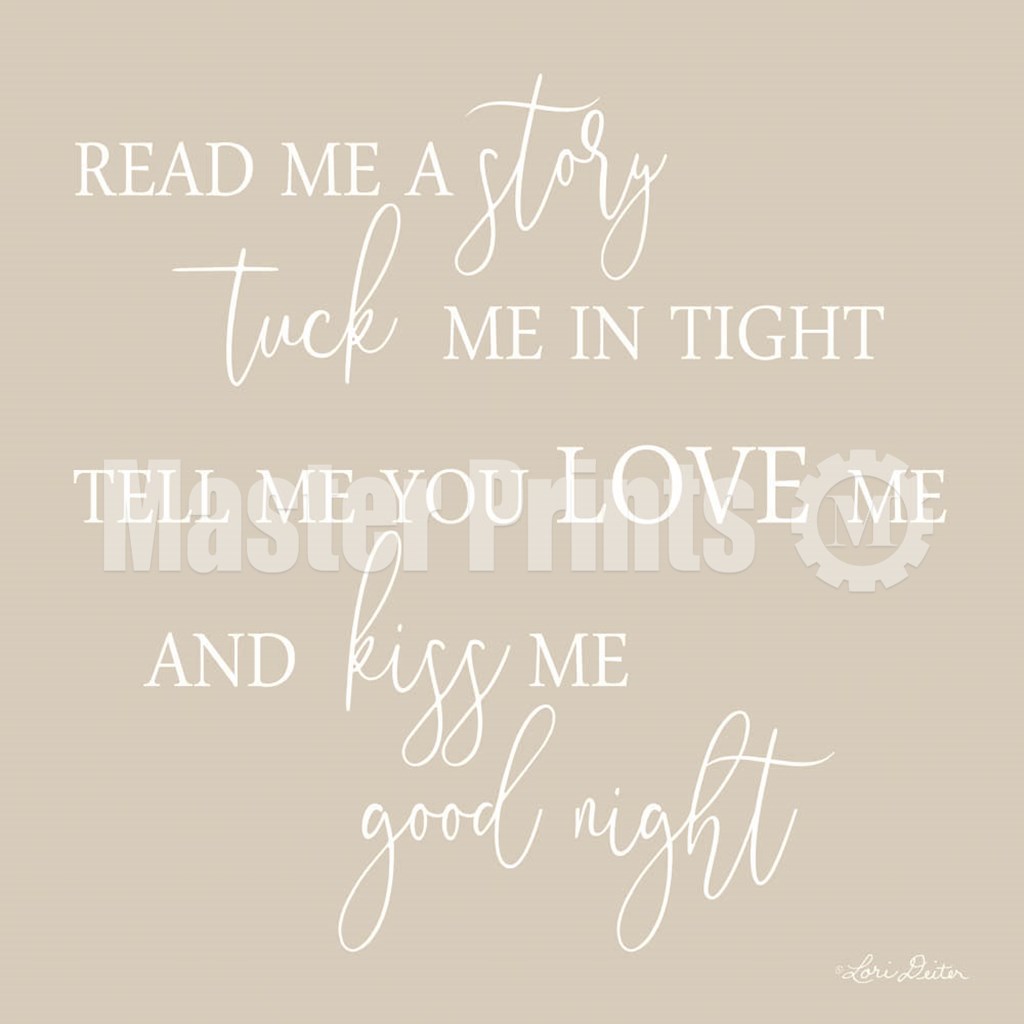 READ ME A story
tuck ME IN TIGHT
TELL ME YOU LOVE ME
Master Prints M
AND kiss ME
good night
©Lori Deiter